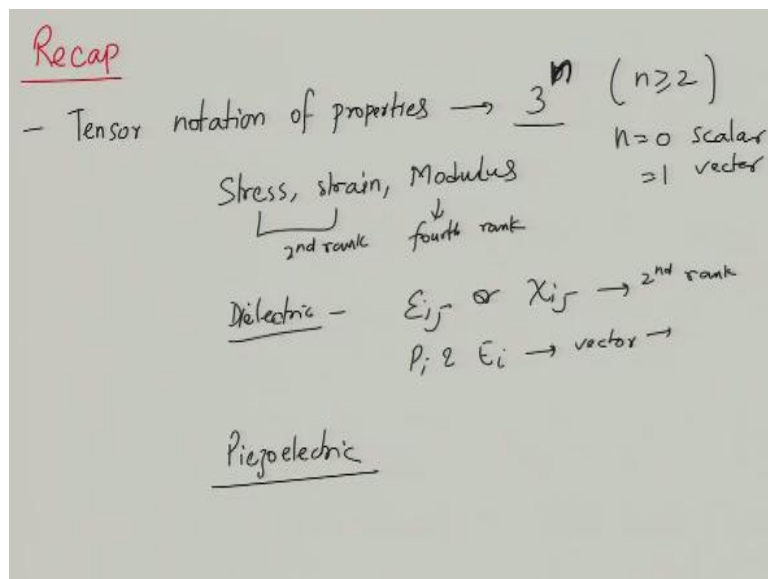 Recap
- Tensor notation of properties → 3ⁿ (n≥2)
n=0 scalar
=1 vector
Stress, strain, Modulus
2nd rank fourth rank
Dielectric - Ɛij or Xij → 2nd rank
Pi & Ei → vector →
Piezoelectric